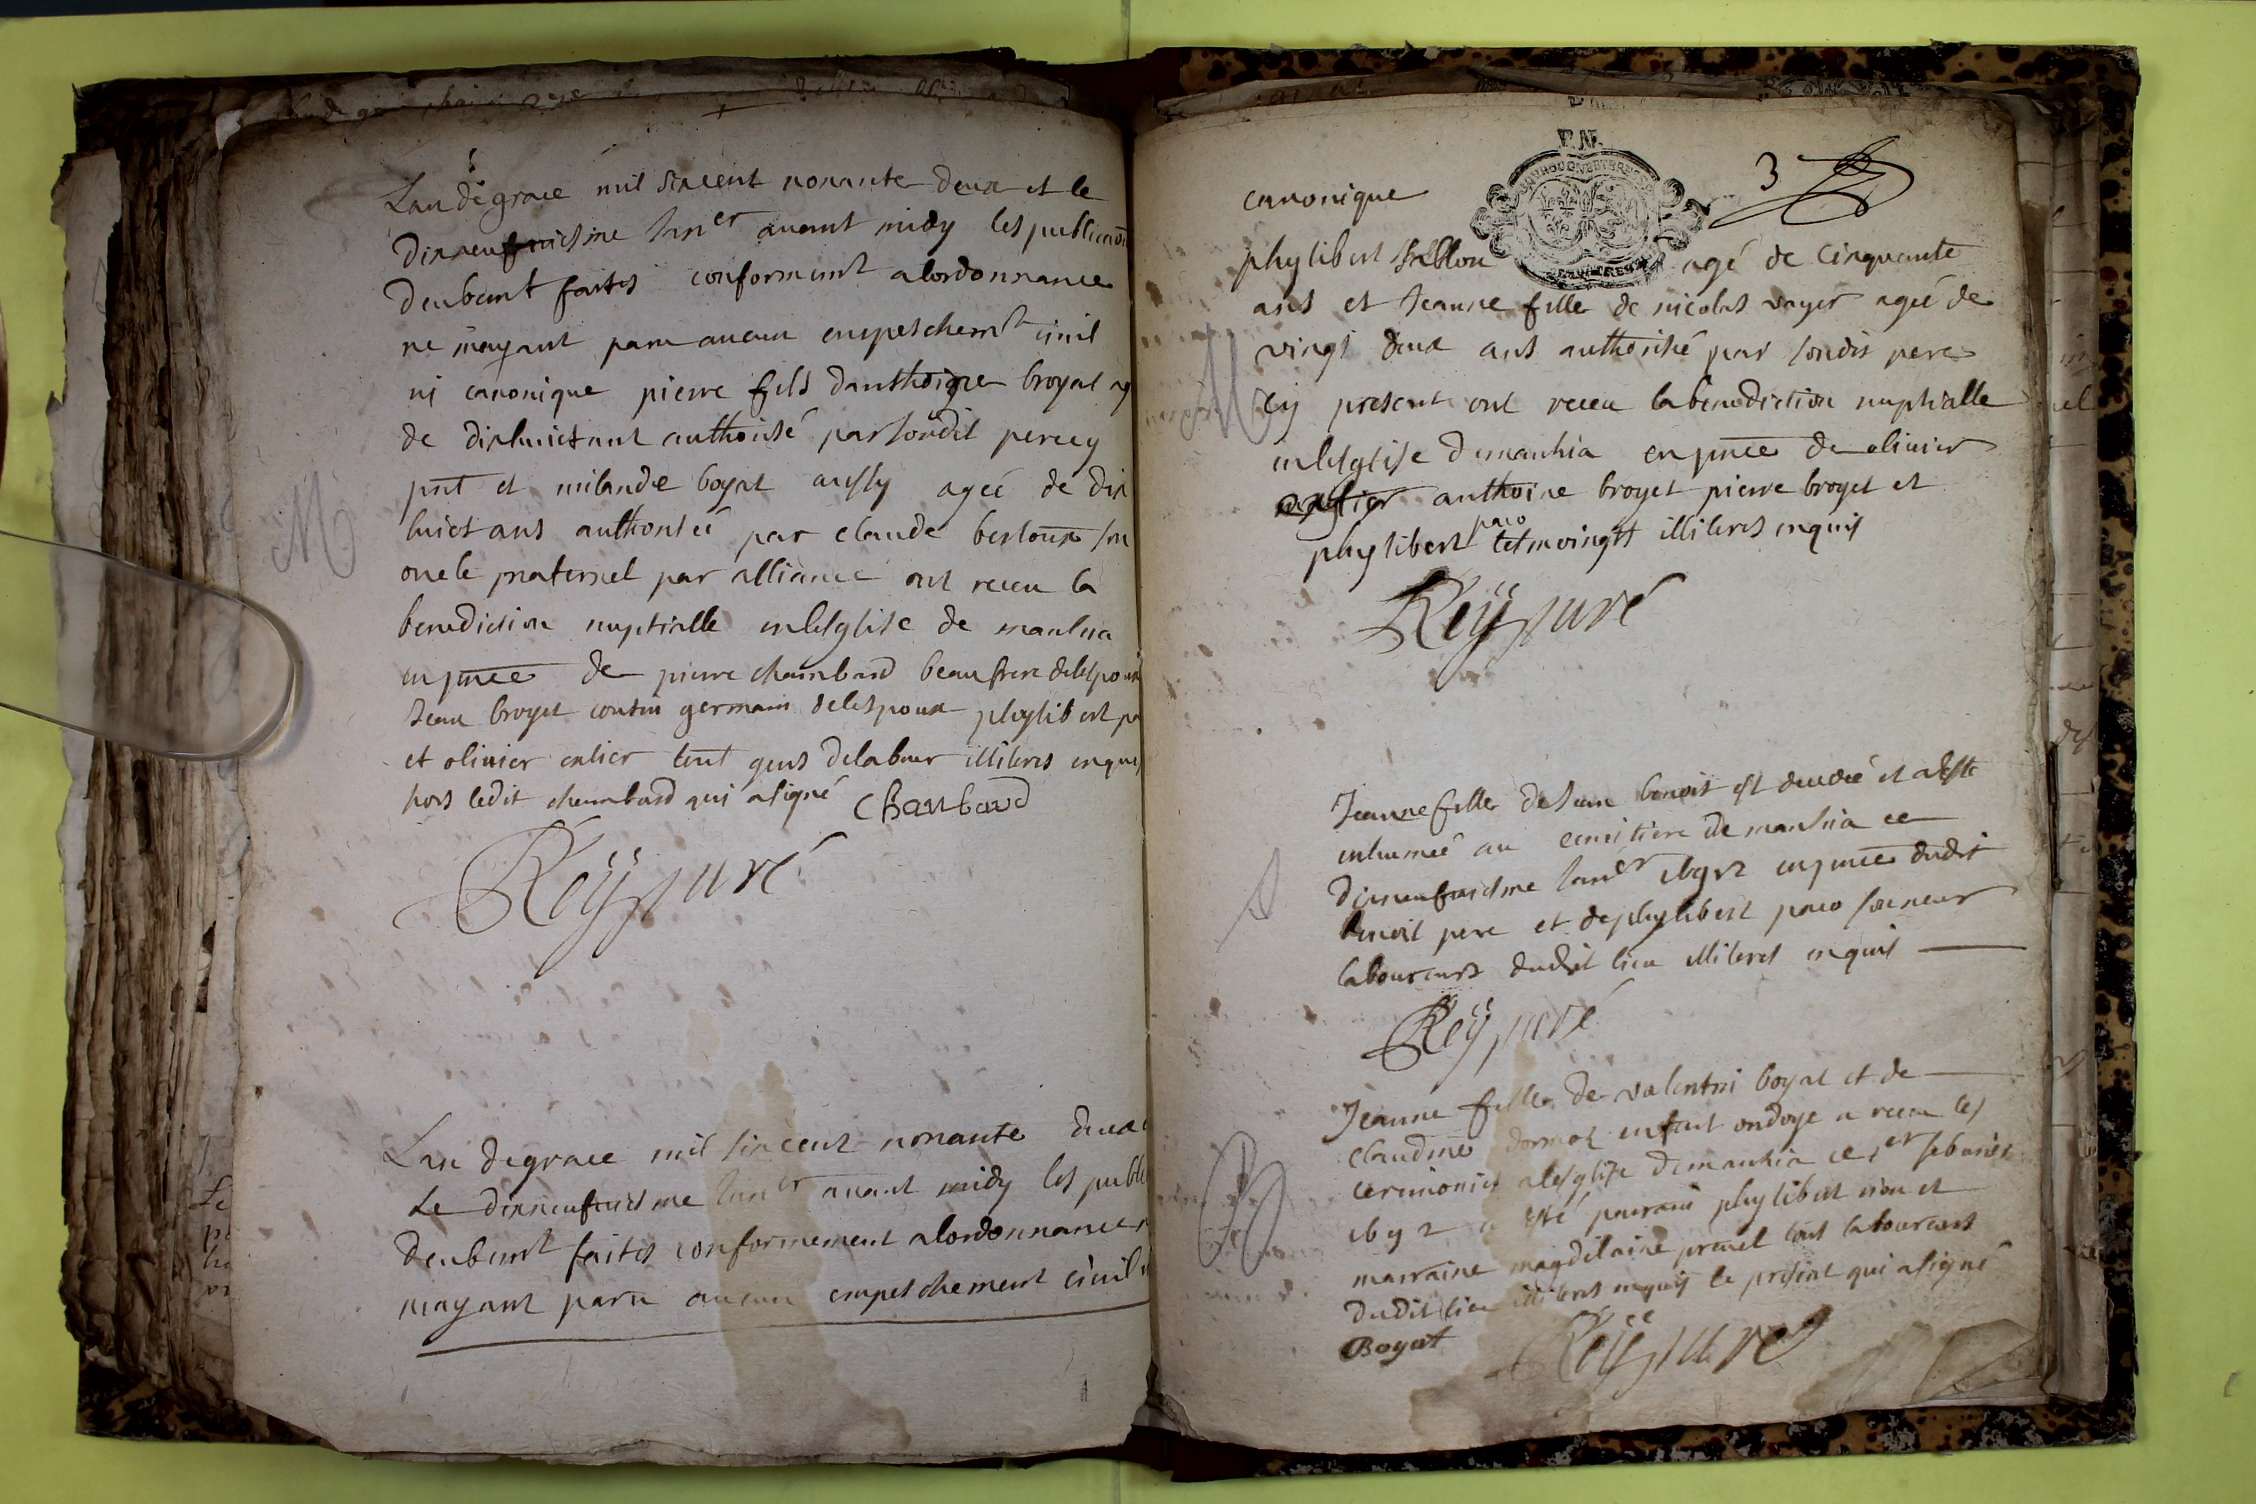 Lan de grace mil sixcent nonante deux et le
dixneufviesme Janer avant midy les publica͠on
deubemt faites conformemt a lordonnance
ne sayant paru aucun empeschemt civil
ni canonique pierre fils danthoine broyat
de dixhuict ans authorisé par sondit pere cy
pnt et milande boyat aussy ageé de dix
huict ans authoriseé par claude son
oncle maternel par alliance ont receu la
benediction nuptialle en lesglise de manhia
en pnce de pierre chambard beaufrere delespoux
Jean broyet cousin germain delespoux phylibert
et olivier tout gens delabeur illiteres enquis
hors ledit chambard qui a signé Chanbard
Reÿ curé
Lan de grace mil sixcent nonante deux
Le dixneufviesme Janer avant midy les publi
deubemt faites conformement a lordonnance
nayant paru aucun empeschement civil
3
canonique
phylibert agé de cinquante
ans et Jeanne fille de nicolas vuyer ageé de
vingt deux ans authorisé par sondit pere
cy present ont receu la benediction nuptialle
en lesglise de manhia en pnce de olivier
anthoine broyet pierre broyet et
phylibert paco tesmoingts illiteres enquis
Reÿ curé
Jeanne fille de Jean benoit est decedeé et a esté
inhumeé au cemitiere de manhia ce
dixneufviesme Janer 1692 en pnce dudit
benoit pere et de phylibert paco
laboureurs dudit lieu illiteres enquis
Reÿ curé
Jeanne fille de valentin boyat et de
claudine enfant ondoye a receu les
cerimonies a lesglise de manhia ce 1er febvrier
1692 a esté parrain phylibert et
marraine magdelaine tous laboureurs
dudit lieu illiteres enquis le présent qui a signé
Boyat Reÿ curé